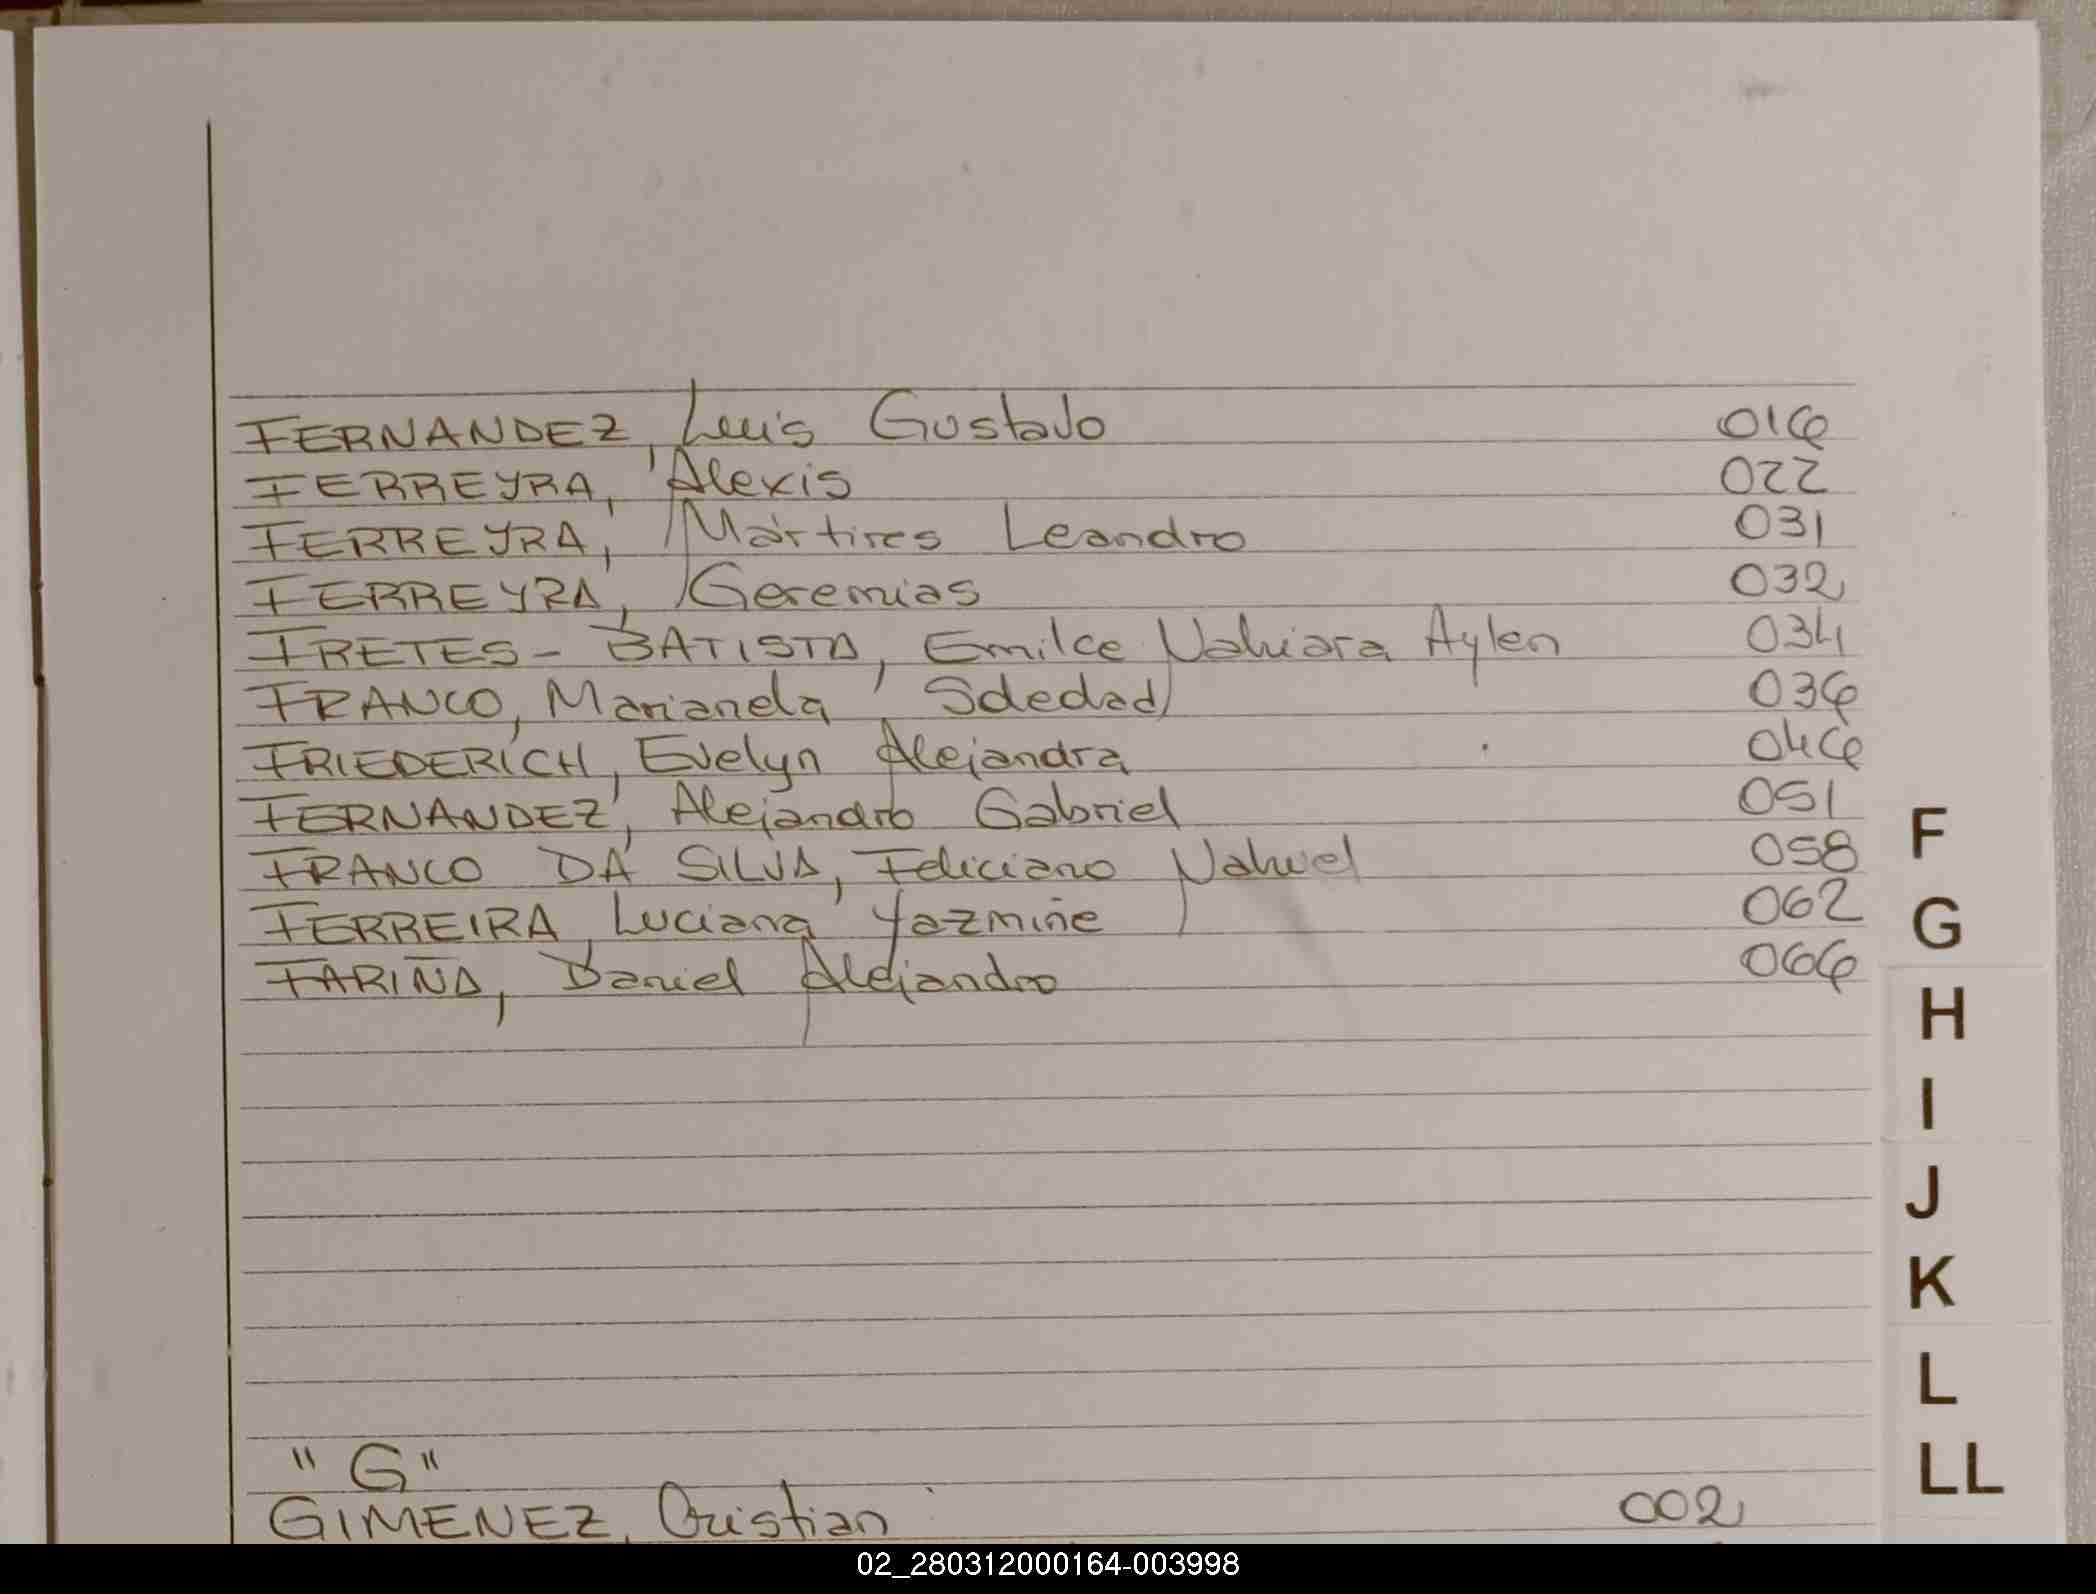 FERNANDEZ, Luis Gustavo 016
FERREYRA, Alexis 022
FERREYRA, Martires Leandro 031
FERREYRA, Geremias 032
FRETES - BATISTA, Emilce Nahiara Aylen 034
FRANCO, Marianela Soledad 036
FRIEDERICH, Evelyn Alejandra 046
FERNANDEZ, Alejandro Gabriel 051
FRANCO DA SILVA, Feliciano Nahuel 058
FERREIRA, Luciana Yazmiñe 062
FARIÑA, Daniel Alejandro 066
F
G
H
I
J
K
L
LL
"G"
GIMENEZ, Cristian 002
02_280312000164-003998